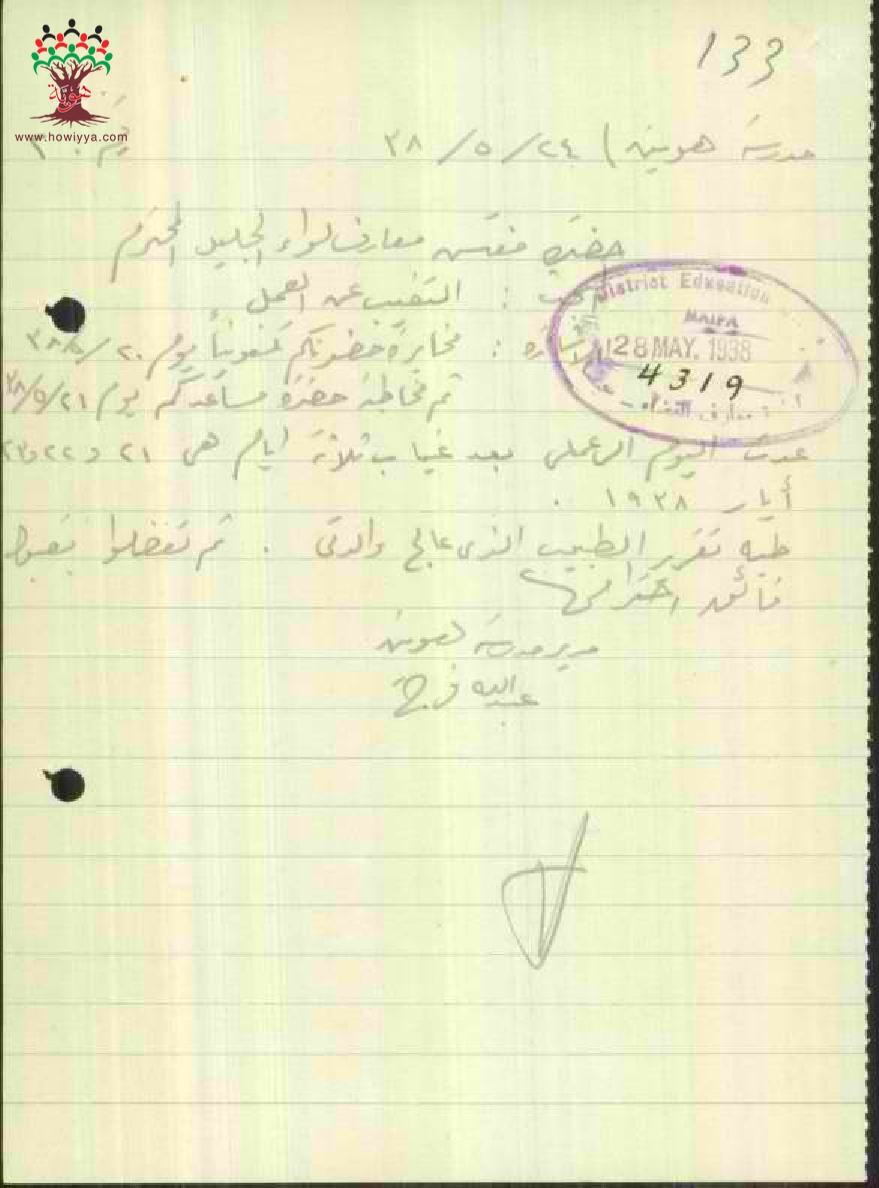 www.howiyya.com
133
مدرسة هونين / ٢٤/٥/٣٨
حضرة مفتش معارف لواء الجليل المحترم
البحث : التغيب عن العمل
الاشارة : مخابرة حضرتكم تلفونياً يوم ٢٠/٥/٣٨
ثم مخاطبة حضرة مساعدكم يوم
عدت اليوم الى عملي بعد غياب ثلاثة ايام هي ٢١ و ٢٢ و ٢٣
أيار ١٩٣٨ .
طيه تقرير الطبيب الذي عالج والدتي . ثم تفضلوا بقبول
فائق احترامي
مدير مدرسة هونين
عبدالله فرج
District Education
HAIFA
28 MAY. 1938
4319